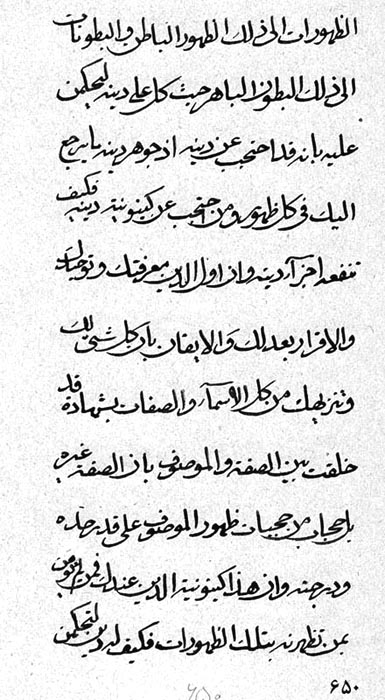 الظهورات الی ذلك الظهور الباطن والبطونات
الی ذلك البطون الباهر حیث كل علی دینه لیحکمن
علیه بانه قد احتجب عن دینه اذ جوهر دینه ما یرجع
الیك فی كل ظهور ومن احتجب عن كینونیة دینه فکیف
تنفعه اجزآء دینه وان اول الدین معرفتك وتوحیدك
والاقرار بعدلك والایقان بان كل شئ لك
وتنزیهك من كل الاسمآء والصفات بشهادة قد
خلقت بین الصفة والموصوف بان الصفة غیره
بل حجاب من حجبات ظهور الموصوف علی قدر حده
ودرجته وان هذا كینونیة الدین عندك فمن یؤمن
بمن تظهرنه بتلك الظهورات فکیف له دین لتحکمن
۶۵۰